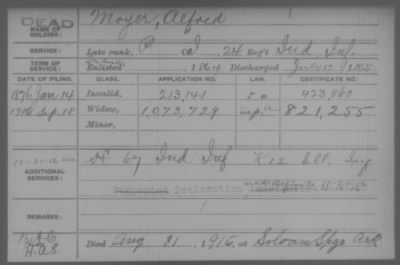 DEAD
NAME OF SOLDIER:
Moyer, Alfred
SERVICE:
Late rank, P Co I, 24 Reg't Ind Inf.
TERM OF SERVICE:
Enlisted 1864 Discharged July 19 1865
DATE OF FILING. CLASS. APPLICATION NO. LAW. CERTIFICATE NO.
1876 Jan. 14 Invalid, 213,141 423,860
1916 Sep. 18 Widow, 1,073,729 821,255
Minor,
ADDITIONAL SERVICES:
67 Ind Inf K 12 Ill. Inf
Declaration
REMARKS:
Died Aug 21, 1916, at Siloam Spgs Ark